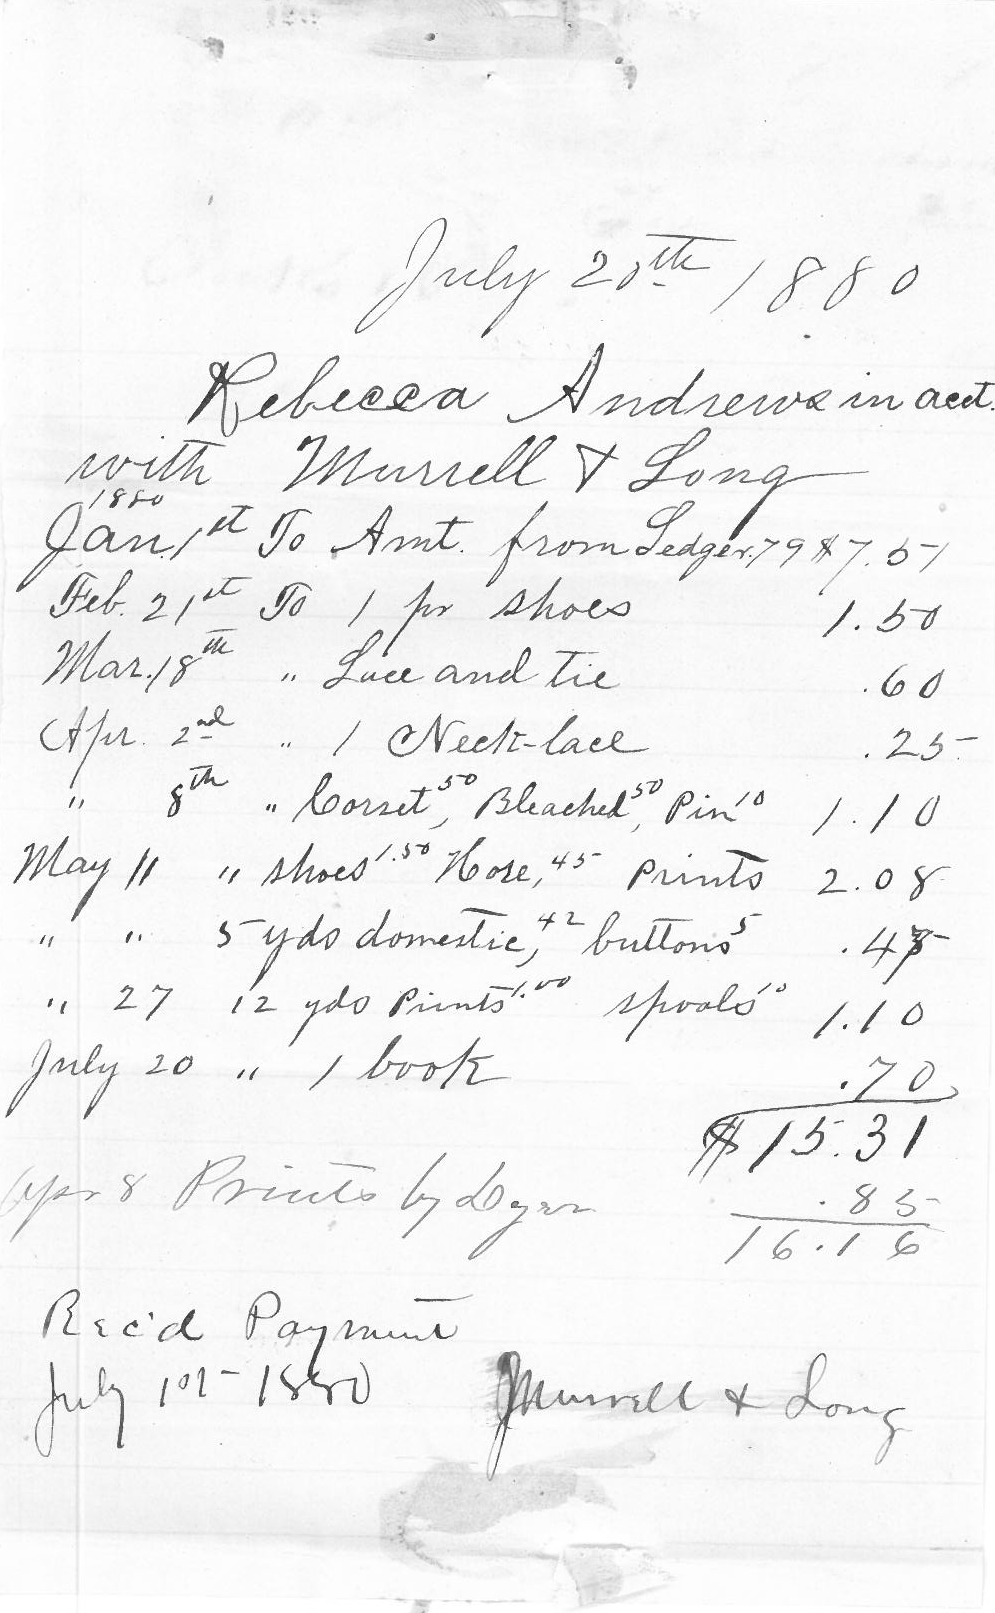 July 20th 1880
Rebecca Andrews in acct.
with Murrell & Long
1880
Jan. 1st To Amt. from Ledger. 79 $7.51
Feb. 21st To 1 pr shoes 1.50
Mar. 18th " Lace and tie .60
Apr. 2nd " 1 Neck-lace .25
" 8th " Corset 50, Bleached 50, Pin 10 1.10
May 11 " shoes 1.50 Hose, 45 prints 2.08
" " 5 yds domestic, 42 buttons 5 .47
" 27 12 yds Prints 1.00 spools 10 1.10
July 20 " 1 book .70
$15.31
Apr 8 Prints by Dyer .85
16.16
Rec'd Payment
July 1st 1880 Murrell & Long